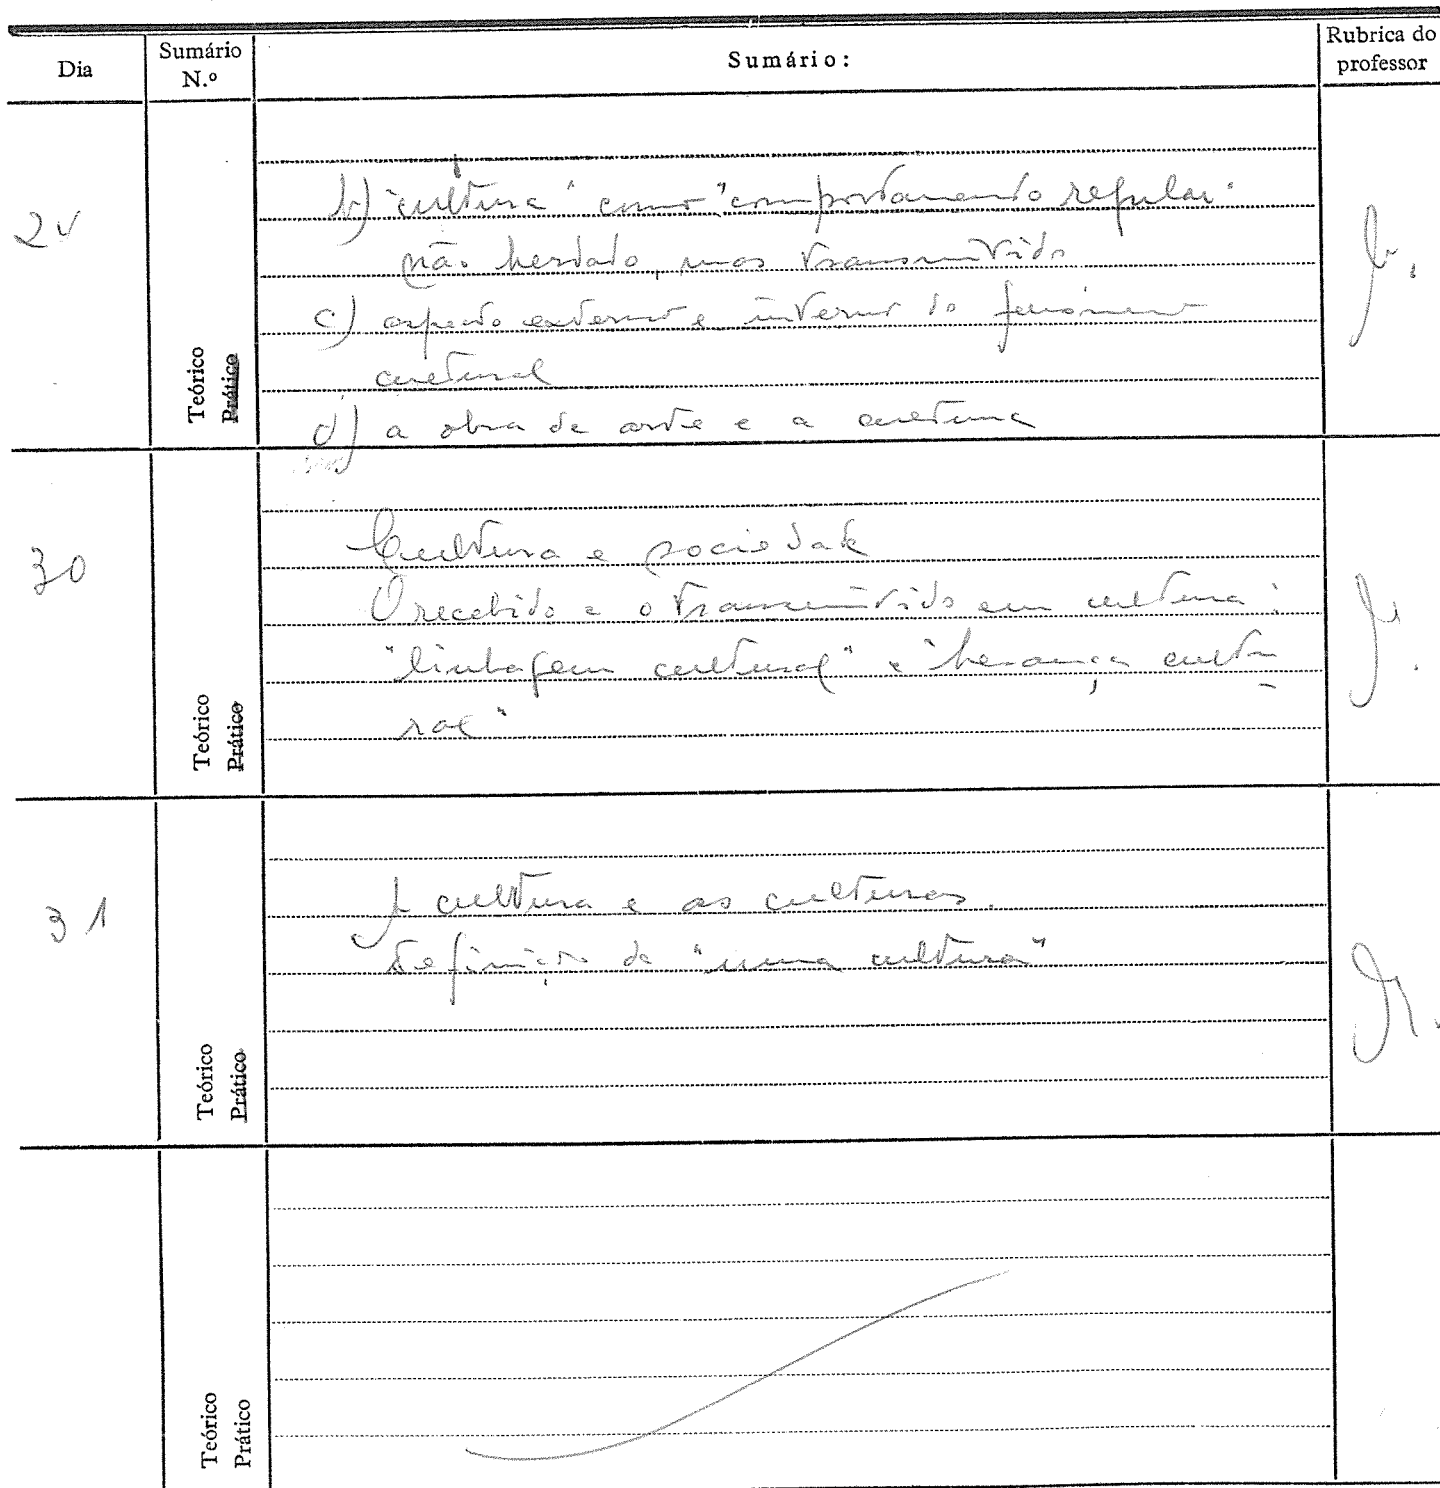 Dia
Sumário N.º
Sumário:
Rubrica do professor
b) "cultura" como "comportamento regular"
não herdado, mas transmitido
c) aspecto externo e interno do fenómeno
cultural
d) a obra de arte e a cultura
Teórico
Prático
30
Cultura e sociedade
O recebido e o transmitido em cultura:
"linhagem cultural" e "herança cultu
ral"
Teórico
Prático
31
A cultura e as culturas.
Definição de "uma cultura"
Teórico
Prático
Teórico
Prático